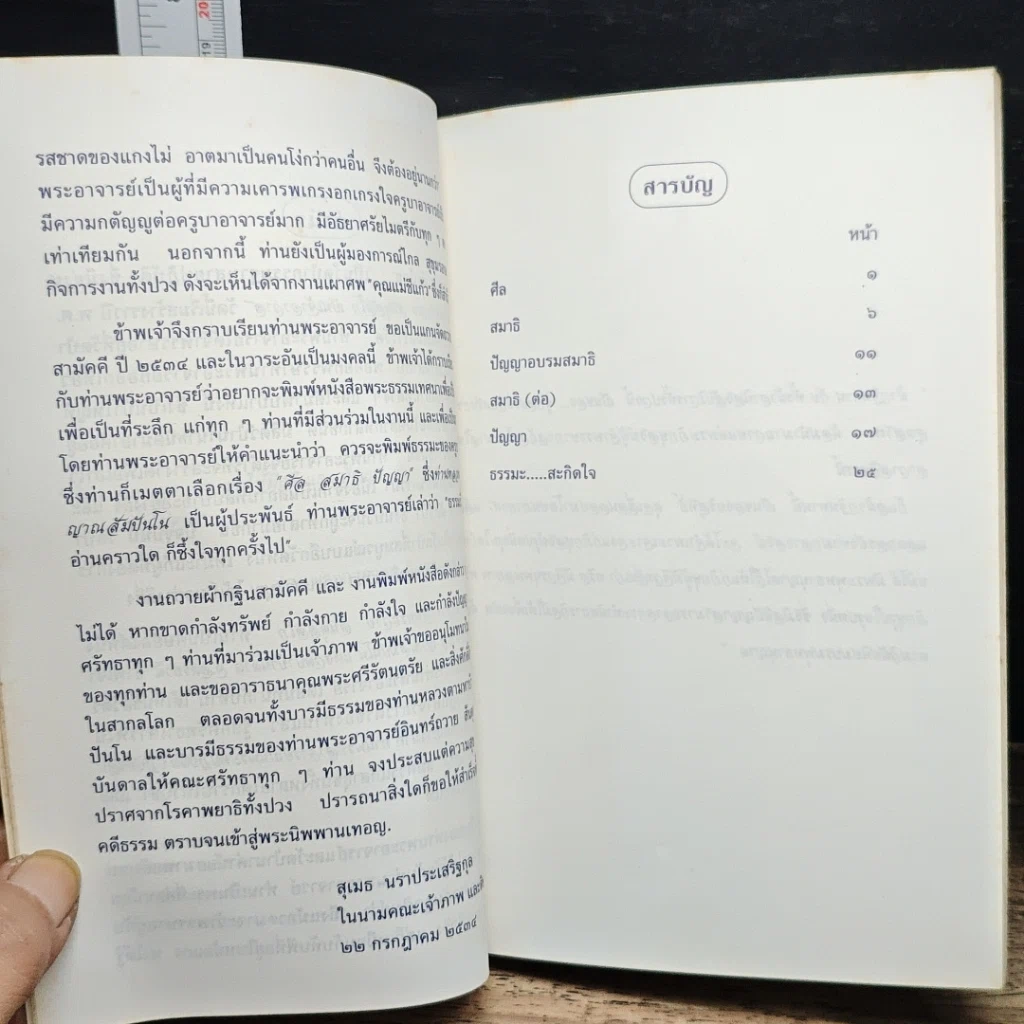 ๒๐
19
รสชาดของแกงไม่ อาตมาเป็นคนโง่กว่าคนอื่น จึงต้องอยู่นานกว่า
พระอาจารย์เป็นผู้ที่มีความเคารพเกรงอกเกรงใจครูบาอาจารย์
มีความกตัญญูต่อครูบาอาจารย์มาก มีอัธยาศรัยไมตรีกับทุก ๆ
เท่าเทียมกัน นอกจากนี้ ท่านยังเป็นผู้มองการณ์ไกล
กิจการงานทั้งปวง ดังจะเห็นได้จากงานเผาศพ "คุณแม่ชีแก้ว"
ข้าพเจ้าจึงกราบเรียนท่านพระอาจารย์ ขอเป็นแกน
สามัคคี ปี ๒๕๓๔ และในวาระอันเป็นมงคลนี้ ข้าพเจ้าได้
กับท่านพระอาจารย์ว่าอยากจะพิมพ์หนังสือพระธรรมเทศนา
เพื่อเป็นที่ระลึก แก่ทุก ๆ ท่านที่มีส่วนร่วมในงานนี้
โดยท่านพระอาจารย์ให้คำแนะนำว่า ควรจะพิมพ์ธรรมะของ
ซึ่งท่านก็เมตตาเลือกเรื่อง "ศีล สมาธิ ปัญญา"
ญาณสัมปันโน เป็นผู้ประพันธ์ ท่านพระอาจารย์เล่าว่า
อ่านคราวใด ก็ซึ้งใจทุกครั้งไป"
งานถวายผ้ากฐินสามัคคี และ งานพิมพ์หนังสือดังกล่าว
ไม่ได้ หากขาดกำลังทรัพย์ กำลังกาย กำลังใจ และกำลังปัญญา
ศรัทธาทุก ๆ ท่านที่มาร่วมเป็นเจ้าภาพ ข้าพเจ้าขออนุโมทนา
ของทุกท่าน และขออาราธนาคุณพระศรีรัตนตรัย และสิ่งศักดิ์
ในสากลโลก ตลอดจนทั้งบารมีธรรมของท่านหลวงตามหา
ปันโน และบารมีธรรมของท่านพระอาจารย์อินทร์ถวาย
บันดาลให้คณะศรัทธาทุก ๆ ท่าน จงประสบแต่ความ
ปราศจากโรคาพยาธิทั้งปวง ปรารถนาสิ่งใดก็ขอให้สำเร็จ
คดีธรรม ตราบจนเข้าสู่พระนิพพานเทอญ.
สุเมธ นราประเสริฐกุล
ในนามคณะเจ้าภาพ
๒๒ กรกฎาคม ๒๕๓๔
สารบัญ
หน้า
ศีล ๑
สมาธิ ๖
ปัญญาอบรมสมาธิ ๑๑
สมาธิ (ต่อ) ๑๓
ปัญญา ๑๗
ธรรมะ.....สะกิดใจ ๒๕